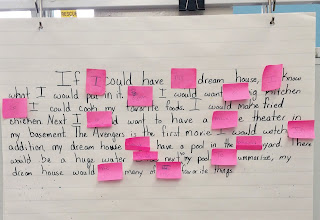 RESCUE
If I could have dream house, know
what I would put in it. I would want kitchen
I could cook my favorite foods. I would make fried
chicken. Next I want to have a theater in
my basement. The Avengers is the first movie I would watch.
addition, my dream house have a pool in the yard. There
would be a huge water next my pool. summarize, my
dream house would many of favorite things.